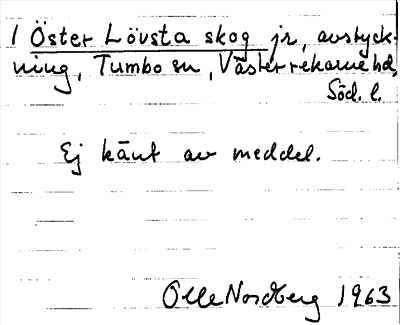 1 Öster Lövsta skog jr, avstyck-
ning, Tumbo sn, Västerrekarne hd,
Söd. l.
Ej känt av meddel.
Olle Nordberg 1963